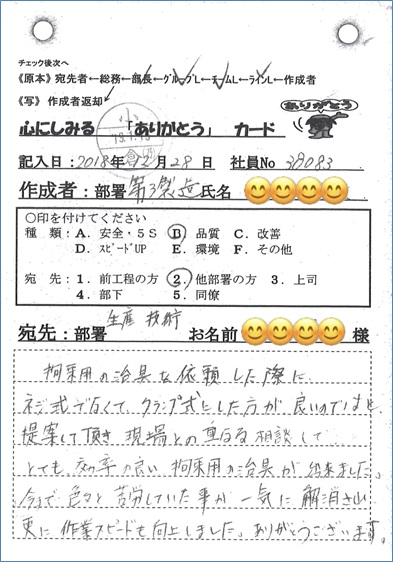 チェック後次へ
《原本》宛先者←総務←部長←グループL←チームL←ラインL←作成者
《写》 作成者返却
心にしみる 「ありがとう」 カード
ありがとう
記入日:2018年12月28日 社員No 38083
作成者:部署 第3製造 氏名
○印を付けてください
種 類:A. 安全・5S B. 品質 C. 改善
D. スピードUP E. 環境 F. その他
宛 先:1. 前工程の方 2. 他部署の方 3. 上司
4. 部下 5. 同僚
宛先:部署 生産技術 お名前 様
拘束用の治具を依頼した際に
ネジ式でなくて、クランプ式にした方が良いのではと
提案して頂き 現場との重なる相談して
とても、効率の良い 拘束用の治具が出来ました。
今まで色々と苦労していた事が 一気に解消され
更に作業スピードも向上しました。ありがとうございます。